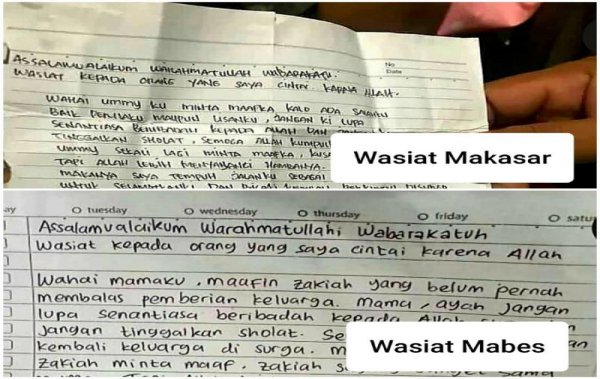 No
Date
ASSALAMUALAIKUM WARAHMATULLAH WABARAKATU.
WASIAT KEPADA ORANG YANG SAYA CINTAI KARNA ALLAH.
WAHAI UMMY KU MINTA MAAFKA, KALO ADA SALAHKU
BAIK PERILAKU MAUPUN LISANKU, JANGAN KI LUPA
SENANTIASA BERIBADAH KEPADA ALLAH DAN
TINGGALKAN SHOLAT, SEMOGA ALLAH KUMPUL
UMMY SEKALI LAGI MINTA MAAFKA,
TAPI ALLAH LEBIH MENYAYANGI HAMBANYA.
MAKANYA SAYA TEMPUH JALANKU SEBAGAI
UNTUK
Wasiat Makasar
ay tuesday wednesday thursday friday satu
Assalamualaikum Warahmatullahi Wabarakatuh
Wasiat kepada orang yang saya cintai karena Allah
Wahai mamaku, maafin zakiah yang belum pernah
membalas pemberian keluarga. mama, ayah jangan
lupa senantiasa beribadah kepada Allah
Jangan tinggalkan sholat. Se
kembali keluarga di surga. m
zakiah minta maaf, zakiah
Wasiat Mabes